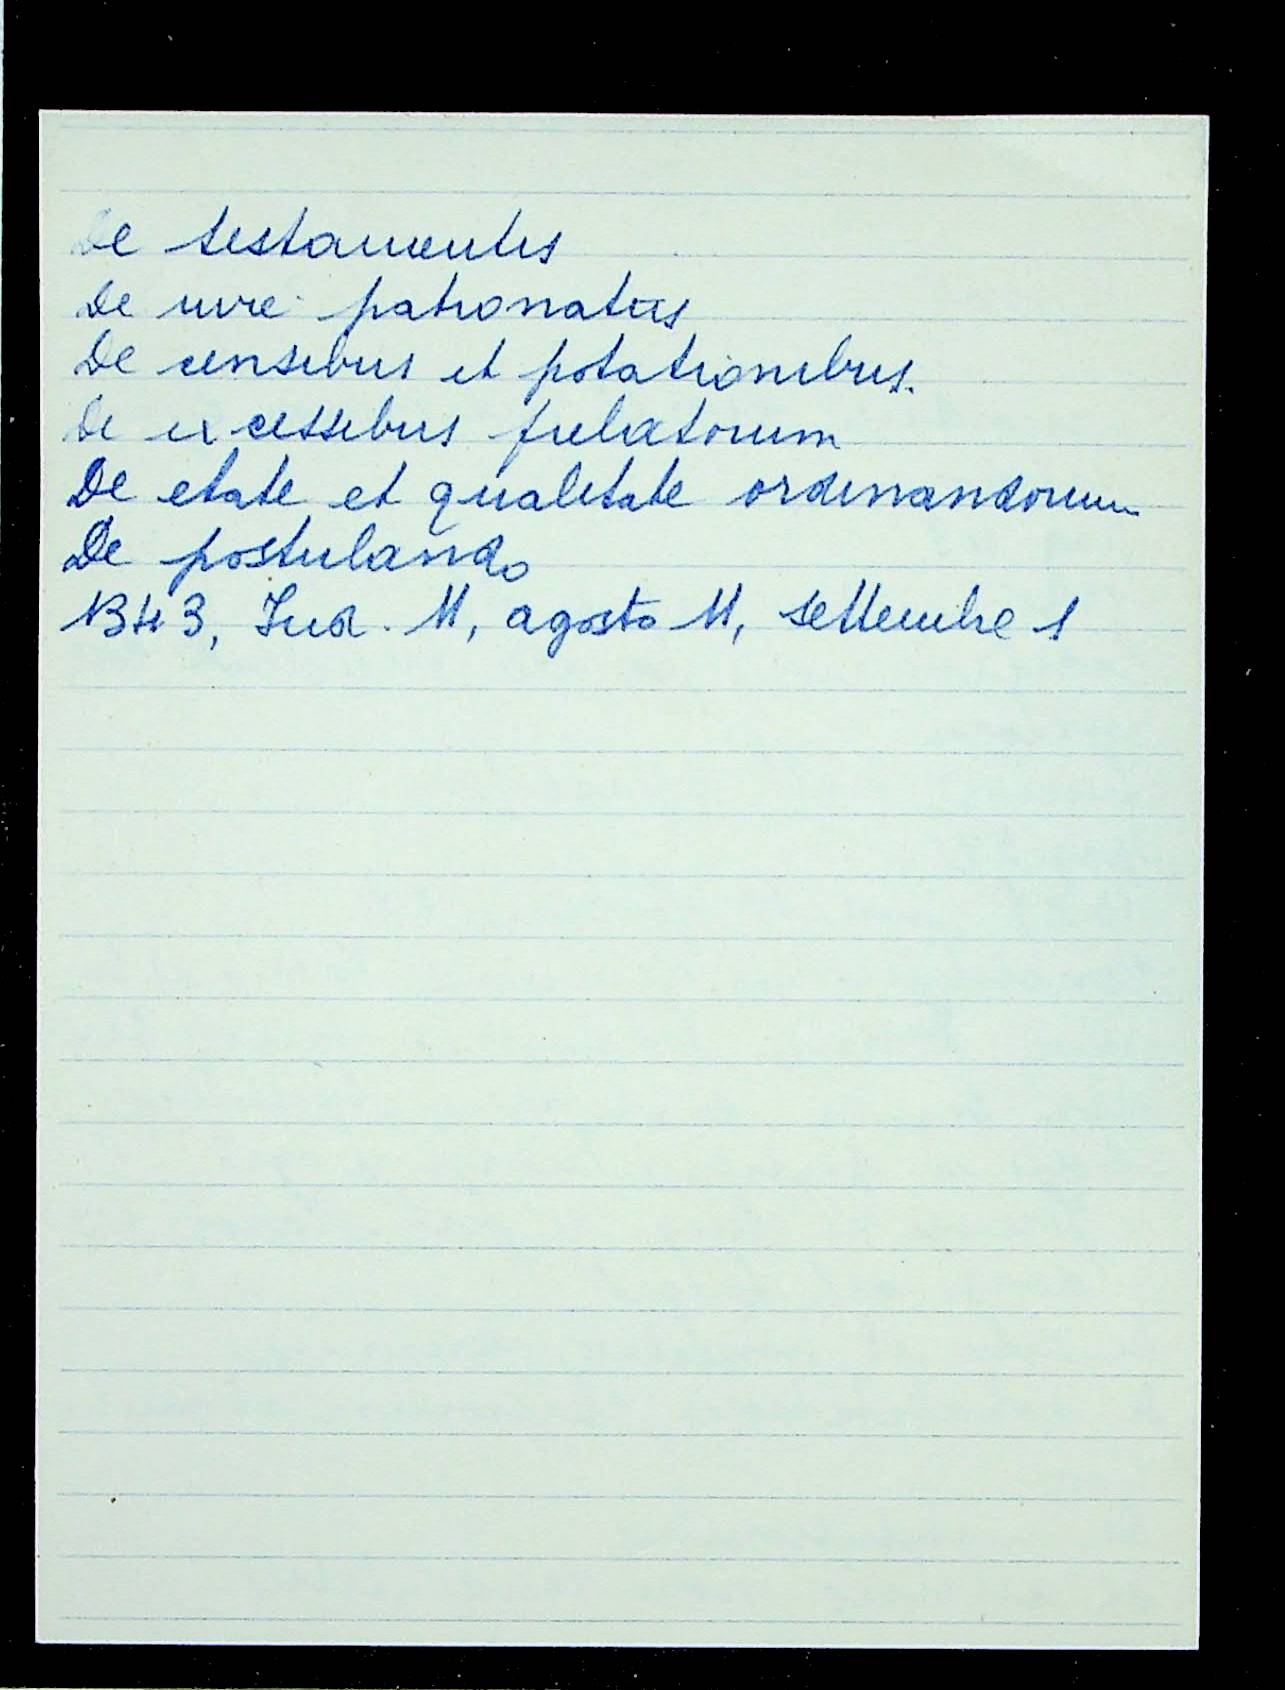 De testamentis
De iure patronatus
De censibus et potationibus.
De excessibus prelatorum
De etate et qualitate ordinandorum
De postulando
1343, Ind. 11, agosto 11, settembre 1